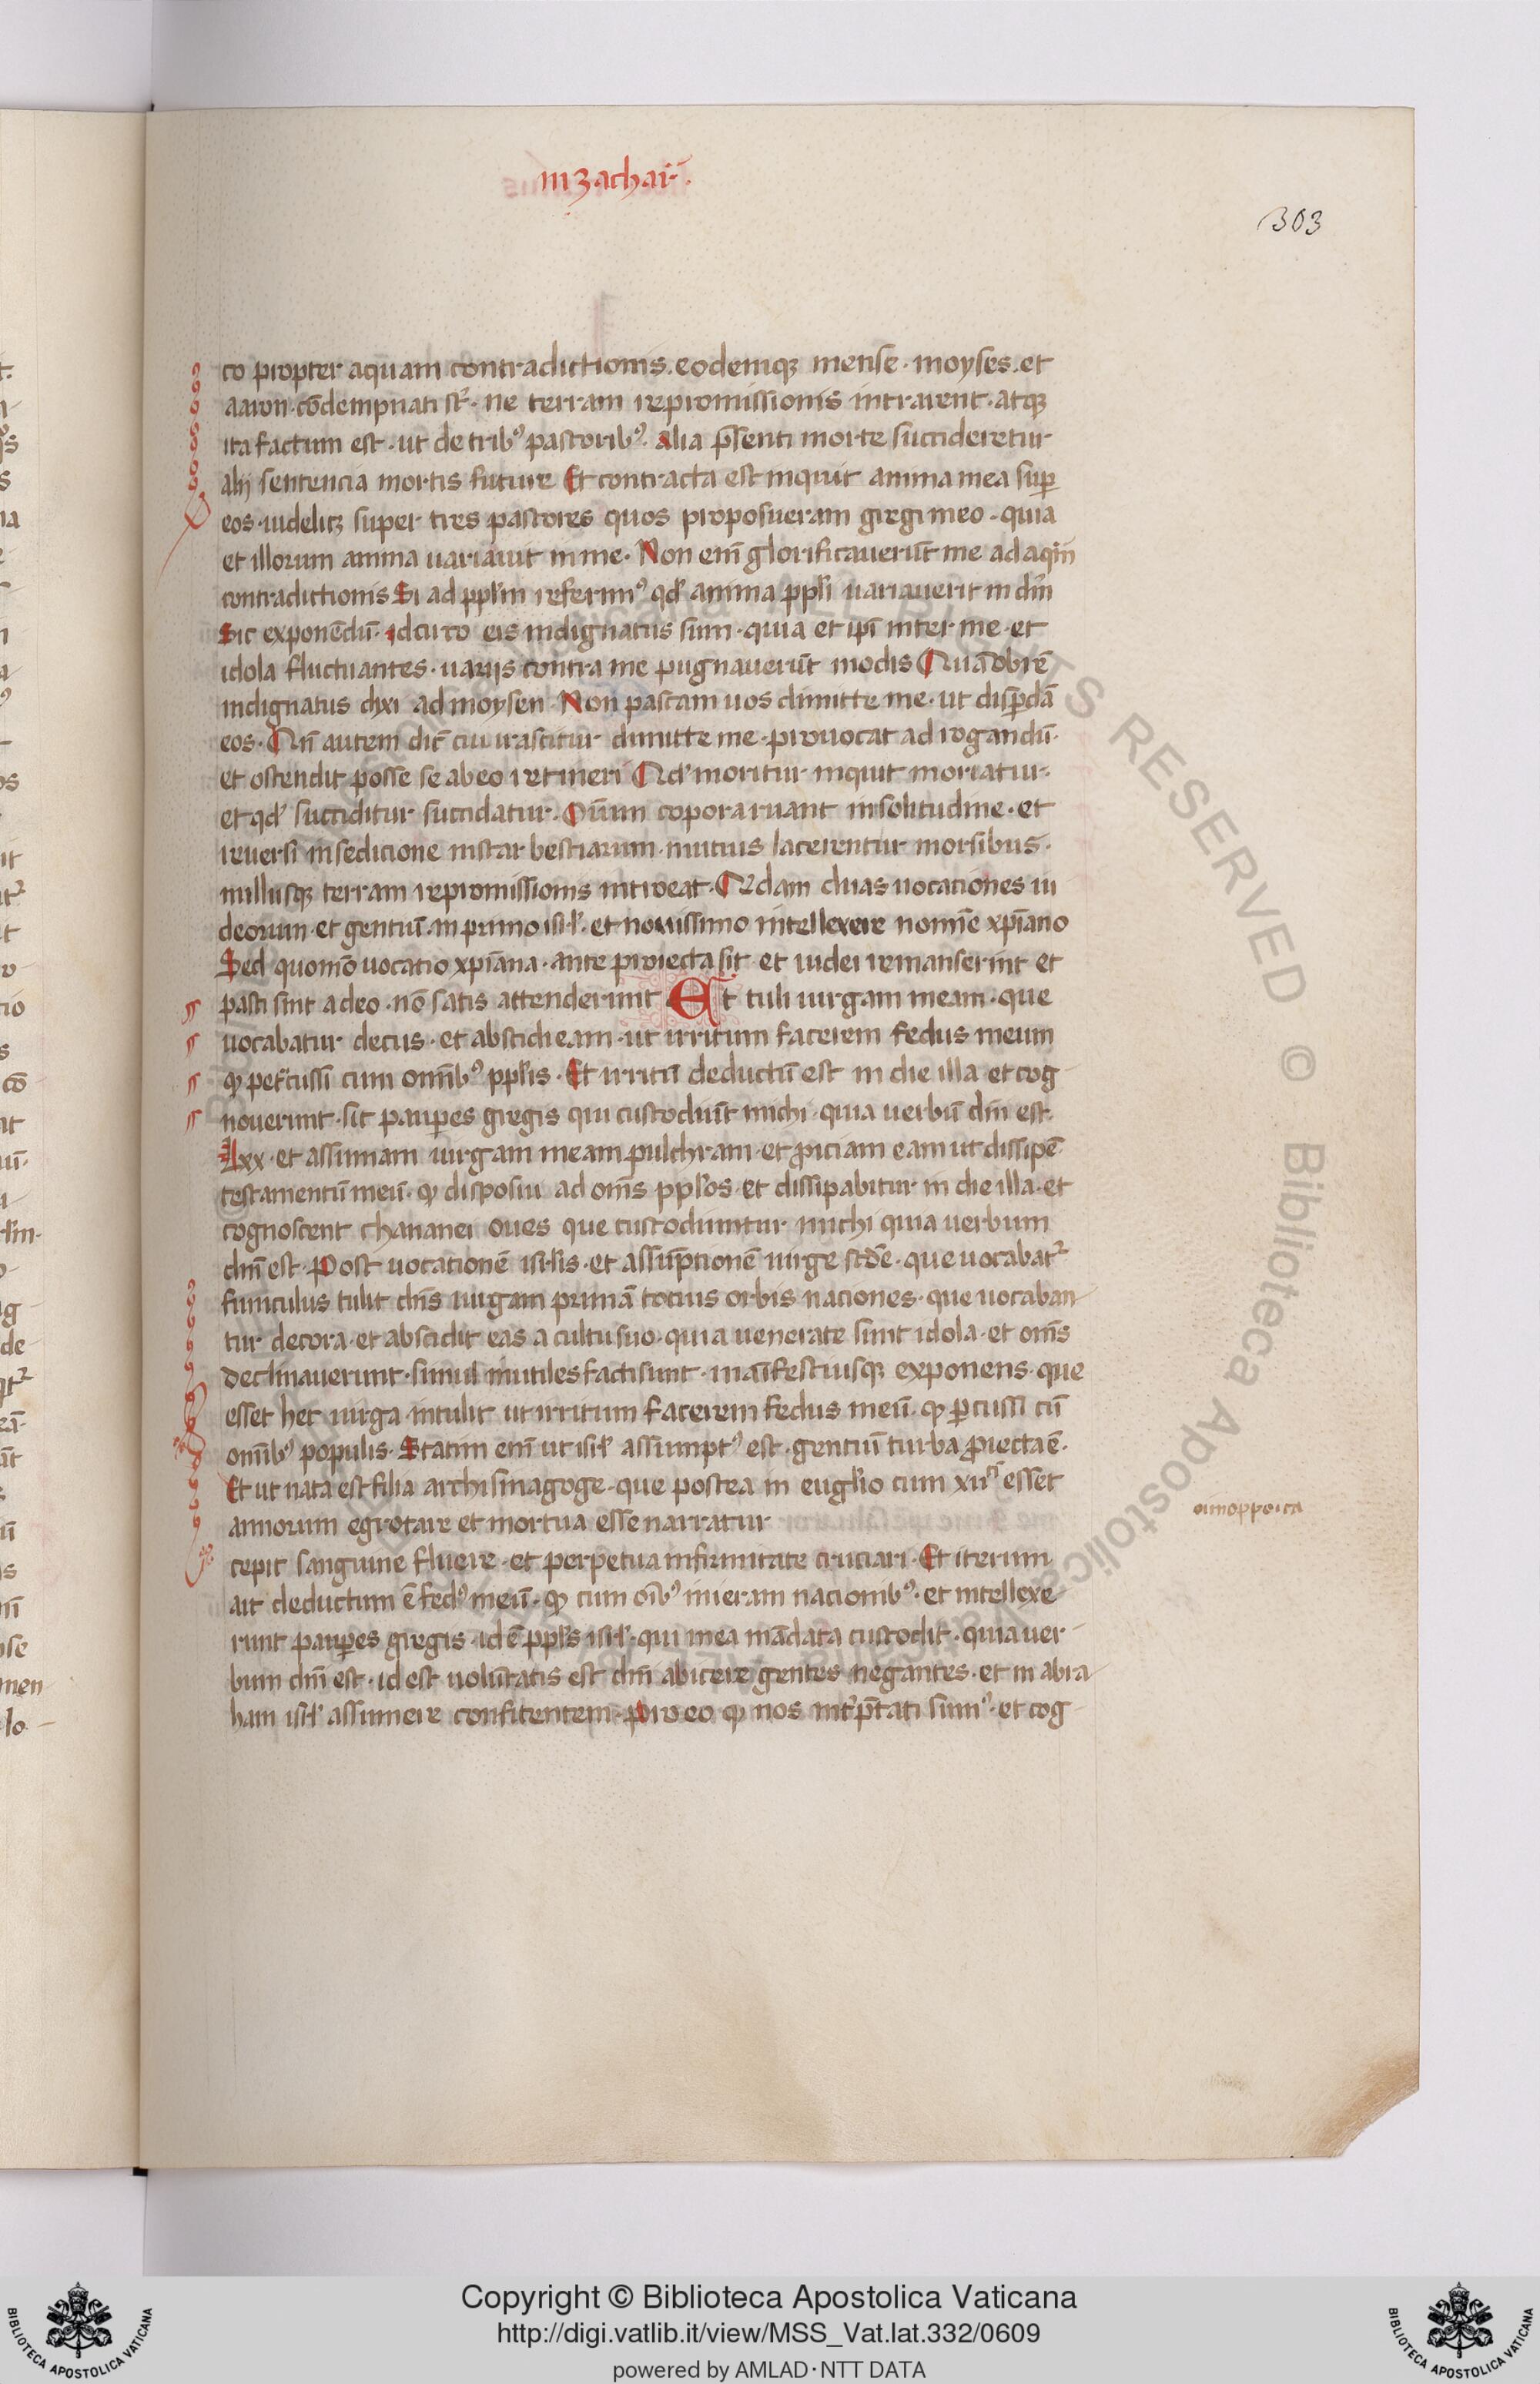 in zachar̄.
303
co propter aquam contradictionis. eodemqꝫ mense · moyses. et
aaron · cōdempnati st̄ · ne terram repromissionis intrarent · atqꝫ
ita factum est · ut de tribꝰ pastoribꝰ · alia p̄senti morte succideretur
alij sentencia mortis future Et contracta est inquit anima mea suꝑ
eos · uidelicꝫ super tres pastores quos proposueram gregi meo · quia
et illorum anima uariauit in me · Non eni̅ glorificauerūt me ad aqm̄
contradictionis Si ad ppl̄m referimꝰ qd̓ anima ppl̄i uariauerit in dn̄m
Sic exponēdū · idcirco eis indignatus sum · quia et ip̄i inter me · et
idola fluctuantes · uarijs contra me pugnauerūt modis Quāobrē
indignatus dixi ad moysen Non pascam uos dimitte me · ut disꝑdā
eos · Qn̄ autem dic̄ cui irascitur dimitte me · prouocat ad rogandū ·
et ostendit posse se ab eo retineri Qd̓ moritur inquit moriatur ·
et qd̓ succiditur succidatur · Quūm copora ruant in solitudine · et
reuersi in sedicione instar bestiarum · mutuis lacerentur morsibus ·
nullusqꝫ terram repromissionis introeat · Qͥdam duas uocationes iu
deorum · et gentiū · in primo isrl̓ · et nouissimo intellexere nomīe xpīano
Sed quomō uocatio xpīana · ante proiecta sit · et iudei remanserint et
pasti sint a deo · nō satis attenderunt Et tuli uirgam meam · que
uocabatur decus · et abscidi eam · ut irritum facerem fedus meum
ꝙ percussi cum omībꝰ ppl̄is · Et irritū deductū est in die illa et cog
nouerunt · sic pauꝑes gregis qui custodiūt michi · quia uerbū dn̄i est ·
Lxx · et assumam uirgam meam pulchram · et ꝓiciam eam ut dissipē
testamentū meū · ꝙ disposui ad oms̄ ppl̄os · et dissipabitur in die illa · et
cognoscent chananei oues que custodiuntur michi quia uerbum
dn̄i est · Post uocationē isrl̓is · et assūptionē uirge scd̄e · que uocabat᷑
funiculus tulit dn̄s uirgam primā tocius orbis naciones · que uocaban
tur decora · et abscidit eas a cultu suo · quia uenerate sunt idola · et oms̄
declinauerunt · simul inutiles facti sunt · manīfestiusqꝫ exponens · que
esset hec uirga · intulit ut irritum facerem fedus meū · ꝙ ꝑcussi cū
omībꝰ populis · Statim eni̅ ut isrl̓ assumptꝰ est · gentiū turba ꝓiecta ē ·
Et ut nata est filia archisinagoge · que postea in euglīo cum xiiᵐ esset
annorum egrotare et mortua esse narratur
oimoppoica
cepit sanguine fluere · et perpetua infirmitate cruciari · Et iterum
ait deductum ē fedꝰ meū · ꝙ cum oībꝰ inieram nacionibꝰ · et intellexe
runt pauꝑes gregis · id ē ppl̄s isrl̓ · qui mea mādata custodit · quia uer
bum dn̄i est · id est uolūtatis est dn̄i abicere gentes negantes · et in abra
ham isrl̓ assumere confitentem · pro eo ꝙ nos int̓p̄tati sumꝰ · et cog
Copyright © Biblioteca Apostolica Vaticana
http://digi.vatlib.it/view/MSS_Vat.lat.332/0609
powered by AMLAD · NTT DATA